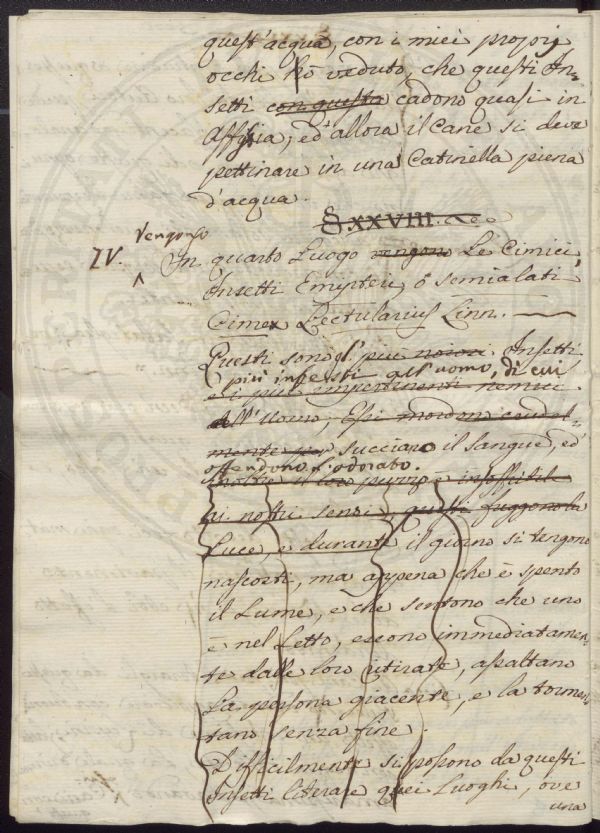 quest'acqua, con i miei proprj
occhi hò veduto, che questi In-
setti con questa cadono quasi in
Affissia, ed'allora il Cane si deve
pettinare in una Catinella piena
d'acqua.
§ XXVIII.
Vengonso
IV. In quarto Luogo vengono Le Cimici,
Insetti Emipteri, o' semialati
Cimex Lectularius Linn.
Questi sono gl' piu noiosi Insetti
più infesti all'uomo, di cui
e i piu impertinenti nemici
dell'Uomo, Essi mordono crudel-
mente per succiano il sangue, ed'
offendono l'odorato.
inoltre il loro puzzo è insoffribile
ai nostri sensi, questi fuggono la
Luce, e durante il giorno si tengono
nascosti, ma appena che è spento
il Lume, e che sentono che uno
è nel Letto, escono immediatamen-
te dalle loro ritirate, assaltano
La persona giacente, e la tormen-
tano senza fine.
Difficilmente si possono da questi
Insetti liberare quei Luoghi, ove
una